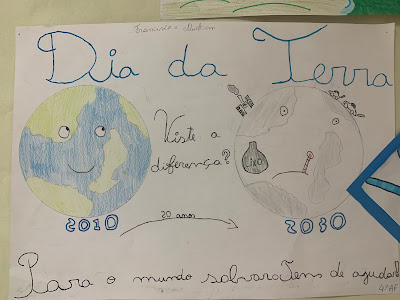 Dia da Terra
Viste a
diferença?
Lixo
2010
20 anos
2030
Para o mundo salvar Tens de ajudar!
4ºAF